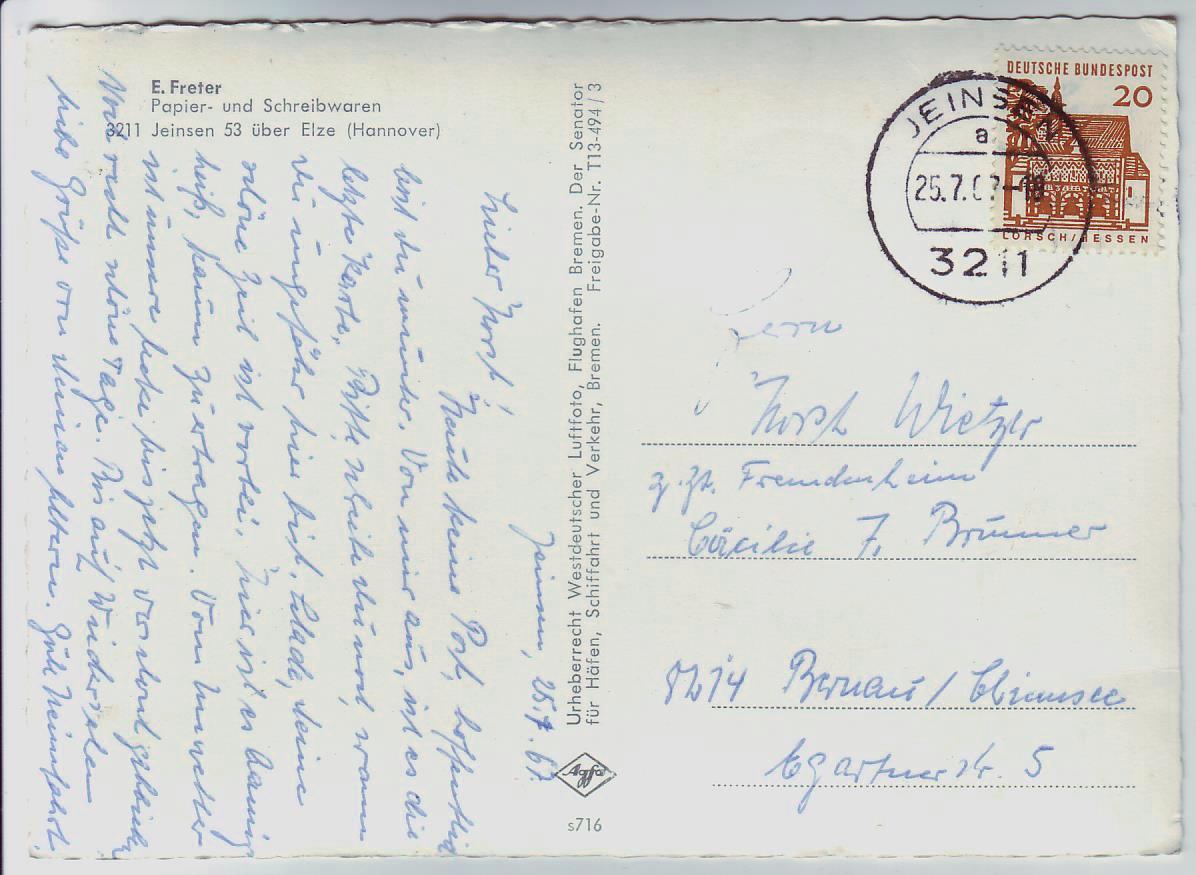 E. Freter
Papier- und Schreibwaren
3211 Jeinsen 53 über Elze (Hannover)
Jeinsen, 25.7.67.
Lieber Horst!
Heute keine Post, hoffentlich
bist du munter. Von mir aus, ist es die
letzte Karte. Bitte schreibe du noch, wann
du ungefähr hier bist. Schade, deine
schöne Zeit ist vorbei. Hier ist es
heiß, kaum zu ertragen. Vom Unwetter
ist unsere Ecke bis jetzt verschont geblieben
Noch recht schöne Tage. Bis auf Wiedersehen
Liebe Grüße von deinen Eltern. Gute Heimfahrt.
Urheberrecht Westdeutscher Luftfoto, Flughafen Bremen. Der Senator
für Häfen, Schiffahrt und Verkehr, Bremen. Freigabe-Nr. T13-494/3
Agfa
s716
DEUTSCHE BUNDESPOST
20
LORSCH/HESSEN
JEINSEN
a
25.7.67-18
3211
Herrn
Horst Wietzer
z. Zt. Fremdenheim
Cäcilie F. Brunner
8214 Bernau/Chiemsee
5